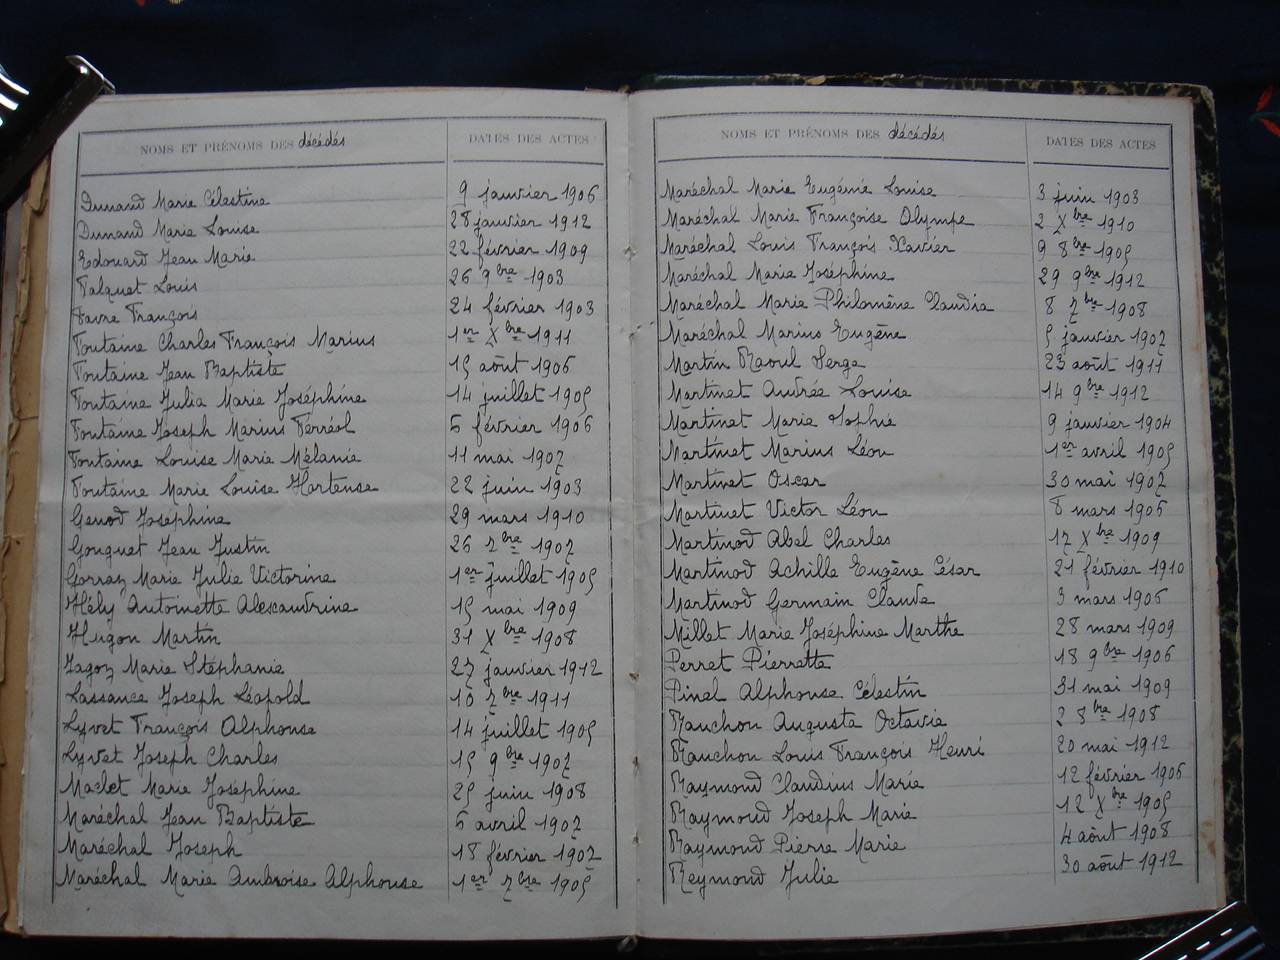 NOMS ET PRÉNOMS DES décédés DATES DES ACTES
Dunand Marie Célestine 9 janvier 1906
Dunand Marie Louise 28 janvier 1912
Edouard Jean Marie 22 février 1909
Falquet Louis 26 9bre 1903
Favre François 24 février 1903
Fontaine Charles François Marius 1er Xbre 1911
Fontaine Jean Baptiste 15 août 1906
Fontaine Julia Marie Joséphine 14 juillet 1905
Fontaine Joseph Marius Ferréol 6 février 1906
Fontaine Louise Marie Mélanie 11 mai 1907
Fontaine Marie Louise Hortense 22 juin 1903
Genod Joséphine 29 mars 1910
Gonguet Jean Justin 26 7bre 1907
Gorraz Marie Julie Victorine 1er juillet 1905
Hély Antoinette Alexandrine 15 mai 1909
Hugon Martin 31 Xbre 1908
Jagoz Marie Stéphanie 27 janvier 1912
Lassance Joseph Léopold 10 7bre 1911
Lyvet François Alphonse 14 juillet 1905
Lyvet Joseph Charles 15 9bre 1907
Maclet Marie Joséphine 25 juin 1908
Maréchal Jean Baptiste 6 avril 1907
Maréchal Joseph 18 février 1907
Maréchal Marie Ambroise Alphonse 1er 7bre 1905
NOMS ET PRÉNOMS DES décédés DATES DES ACTES
Maréchal Marie Eugénie Louise 3 juin 1903
Maréchal Marie Françoise Olympe 2 Xbre 1910
Maréchal Louis François Xavier 9 8bre 1905
Maréchal Marie Joséphine 29 9bre 1912
Maréchal Marie Philomène Claudia 8 7bre 1908
Maréchal Marius Eugène 5 janvier 1907
Martin Raoul Serge 23 août 1911
Martinet Andrée Louise 14 9bre 1912
Martinet Marie Sophie 9 janvier 1904
Martinet Marius Léon 1er avril 1905
Martinet Oscar 30 mai 1907
Martinet Victor Léon 8 mars 1906
Martinod Abel Charles 17 Xbre 1909
Martinod Achille Eugène César 21 février 1910
Martinod Germain Claude 3 mars 1906
Millet Marie Joséphine Marthe 28 mars 1909
Perret Pierrette 18 9bre 1906
Pinel Alphonse Célestin 31 mai 1909
Ranchon Augusta Octavie 2 8bre 1908
Ranchon Louis François Henri 20 mai 1912
Raymond Claudius Marie 12 février 1906
Raymond Joseph Marie 12 Xbre 1905
Raymond Pierre Marie 4 août 1908
Reymond Julie 30 août 1912